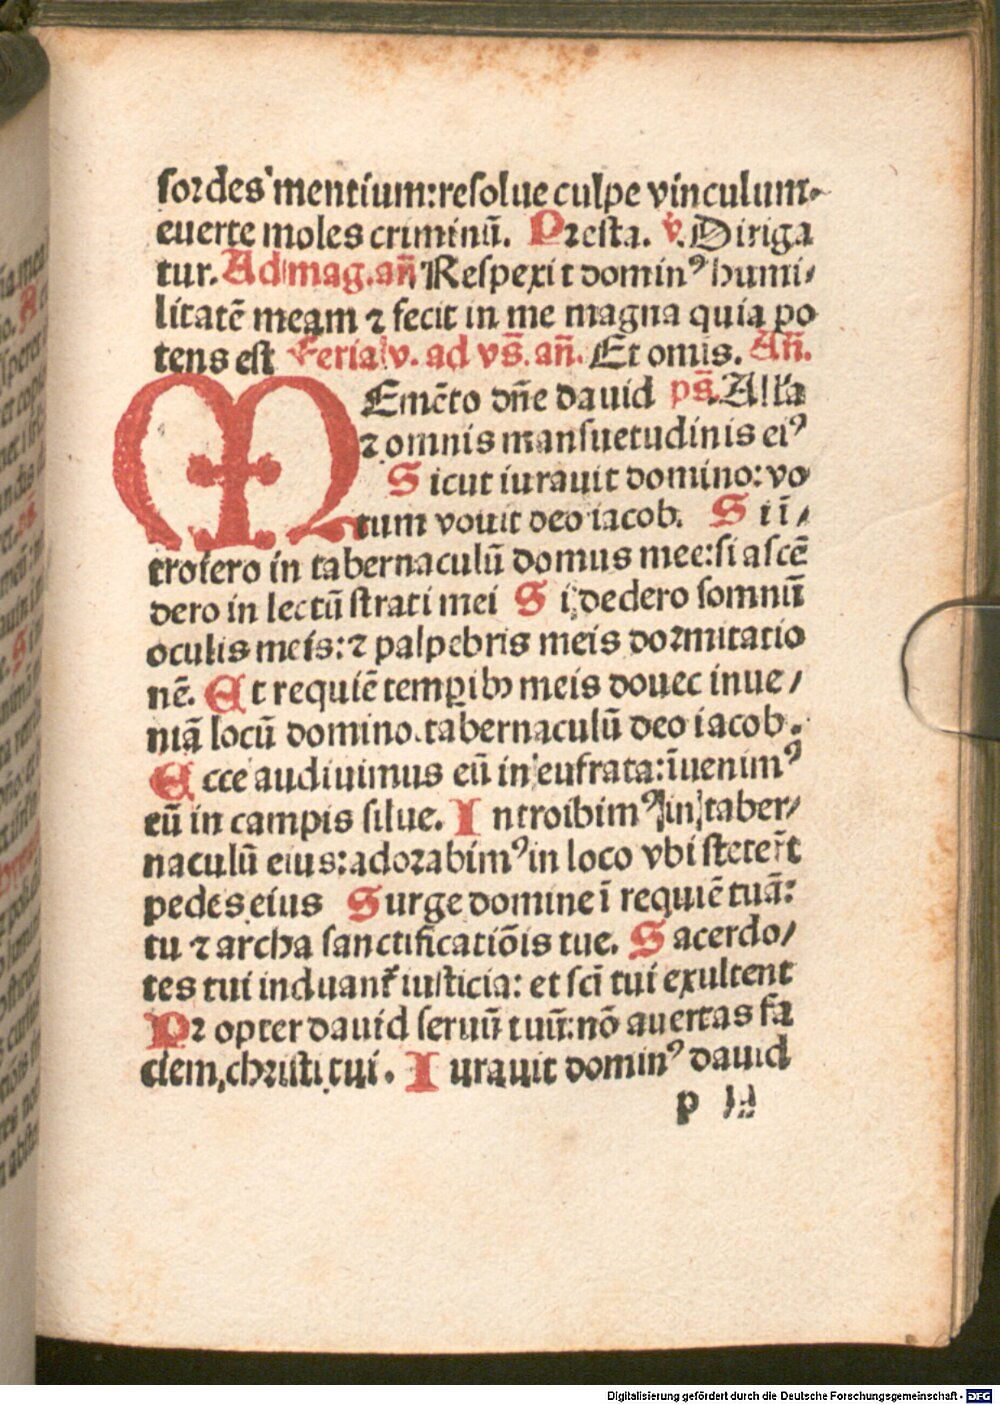 sordes mentium:resolue culpe vinculum
euerte moles criminū. Presta. v̇. Diriga
tur. Ad mag. an̄ Respexit dominꝰ humi/
litatē meam ⁊ fecit in me magna quia po
tens est Feria v. ad vs̄. an̄. Et omīs. An̄.
MEmēto dn̄e dauid ps̄. Alla
⁊ omnis mansuetudinis eiꝰ
Sicut iurauit domino: vo
tum vouit deo iacob. Si ī/
troiero in tabernaculū domus mee:si ascē
dero in lectū strati mei Si dedero somnū
oculis meis:⁊ palpebris meis dormitatio
nē. Et requiē temꝑibꝫ meis donec inue/
niā locū domino. tabernaculū deo iacob.
Ecce audiuimus eū in eufrata:īuenimꝰ
eū in campis silue. Introibimꝰ in taber/
naculū eius:adorabimꝰ in loco vbi steter̄t
pedes eius Surge domine ī requiē tuā:
tu ⁊ archa sanctificatiōis tue. Sacerdo/
tes tui induant᷑ iusticia: et sc̄i tui exultent
Propter dauid seruū tuū:nō auertas fa
ciem christi tui. Iurauit dominꝰ dauid
p
Digitalisierung gefördert durch die Deutsche Forschungsgemeinschaft - DFG